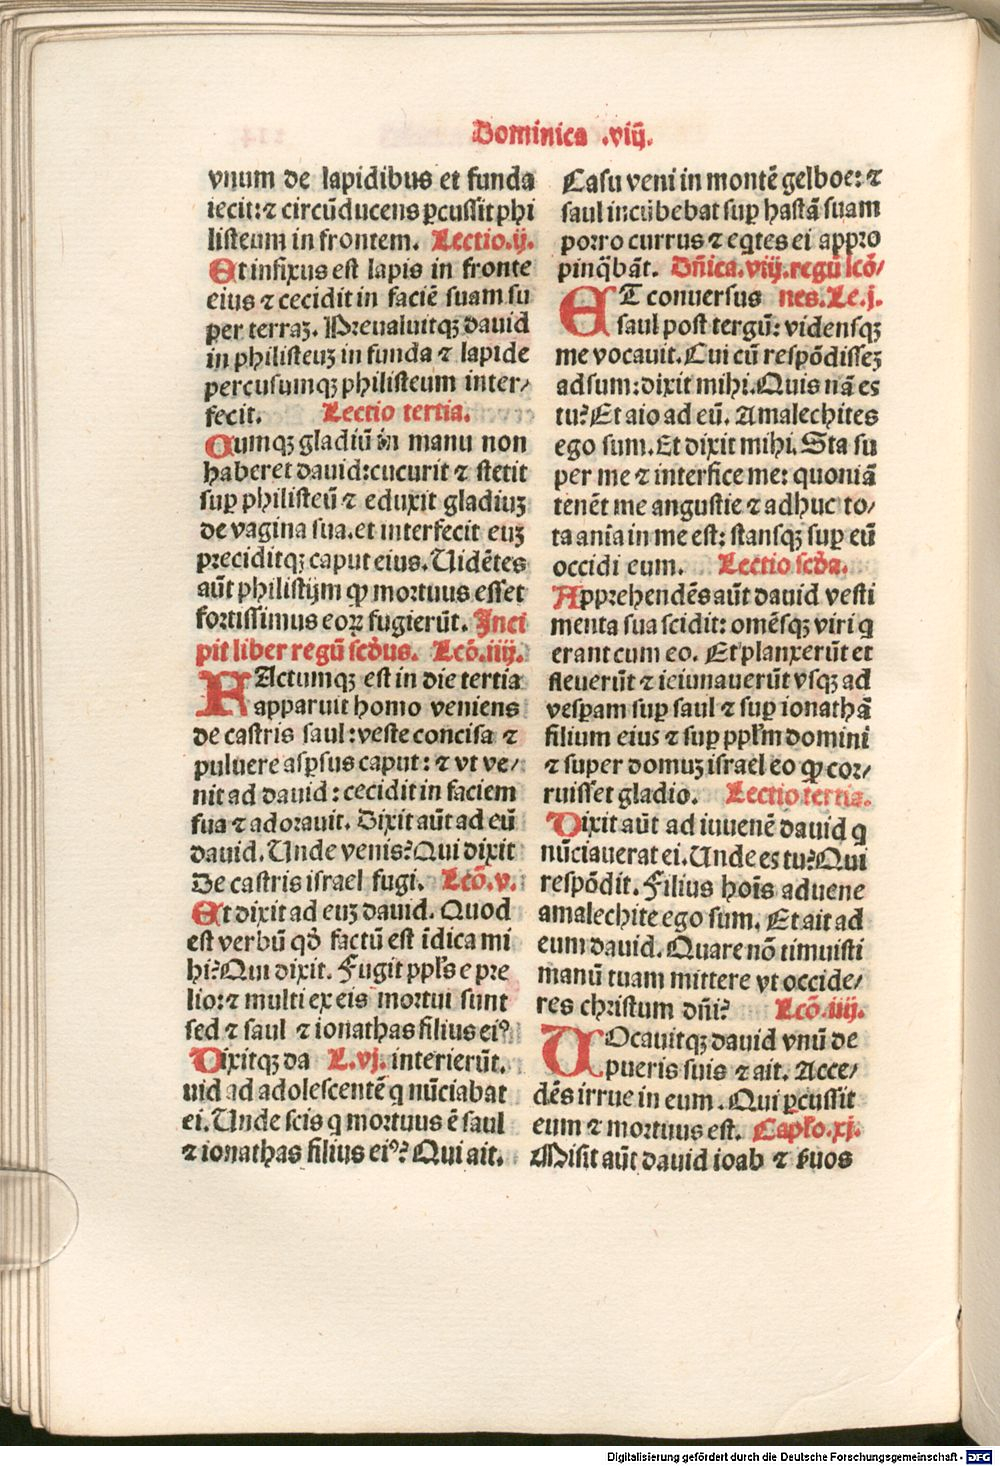 Dominica .viij̄.
vnum de lapidibus et funda
iecit: ⁊ circūducens ꝑcussit phi
listeum in frontem. Lectio.ij.
Et infixus est lapis in fronte
eius ⁊ cecidit in faciē suam su
per terraꝫ. Preualuitqꝫ dauid
in philisteuꝫ in funda ⁊ lapide
percusumqꝫ philisteum inter/
fecit. Lectio tertia.
Cumqꝫ gladiū in manu non
haberet dauid: cucurit ⁊ stetit
suꝑ philisteū ⁊ eduxit gladiuꝫ
de vagina sua. et interfecit euꝫ
preciditqꝫ caput eius. Uidētes
aūt philistijm ꝙ mortuus esset
fortissimus eoꝝ fugierūt. Inci
pit liber regū scd̄us. Lcō.iiij.
FActumqꝫ est in die tertia
apparuit homo veniens
de castris saul: veste concisa ⁊
puluere asꝑsus caput: ⁊ vt ve/
nit ad dauid: cecidit in faciem
sua ⁊ adorauit. Dixit aūt ad eū
dauid. Unde venis? Qui dixit
De castris israel fugi. Lcō.v.
Et dixit ad euꝫ dauid. Quod
est verbū qd̄ factū est īdica mi
hi? Qui dixit. Fugit ppl̄s e pre
lio: ⁊ multi ex eis mortui sunt
sed ⁊ saul ⁊ ionathas filius eiꝰ
Dixitqꝫ da L.vj. interierūt.
uid ad adolescentē q nūciabat
ei. Unde scis q mortuus ē saul
⁊ ionathas filius eiꝰ? Qui ait.
Casu veni in montē gelboe: ⁊
saul incūbebat suꝑ hastā suam
porro currus ⁊ eq̇tes ei appro
pinq̄bāt. Dn̄ica.viij.regū lcō/
ET conuersus nes. Le.j.
saul post tergū: vidensqꝫ
me vocauit. Cui cū respōdisseꝫ
adsum: dixit mihi. Quis nā es
tu? Et aio ad eū. Amalechites
ego sum. Et dixit mihi. Sta su
per me ⁊ interfice me: quoniā
tenēt me angustie ⁊ adhuc to/
ta aīa in me est: stansqꝫ suꝑ eū
occidi eum. Lectio scd̄a.
Apprehendēs aūt dauid vesti
menta sua scidit: omēsqꝫ viri q
erant cum eo. Et planxerūt et
fleuerūt ⁊ ieiunauerūt vsqꝫ ad
vesꝑam suꝑ saul ⁊ suꝑ ionathā
filium eius ⁊ suꝑ ppl̄m domini
⁊ super domuꝫ israel eo ꝙ cor/
ruisset gladio. Lectio tertia.
Dixit aūt ad iuuenē dauid q
nūciauerat ei. Unde es tu? Qui
respōdit. Filius hoīs aduene
amalechite ego sum. Et ait ad
eum dauid. Quare nō timuisti
manū tuam mittere vt occide/
res christum dn̄i? Lcō.iiij.
UOcauitqꝫ dauid vnū de
pueris suis ⁊ ait. Acce/
dēs irrue in eum. Qui ꝑcussit
eum ⁊ mortuus est. Capl̄o.xj.
Misit aūt dauid ioab ⁊ ẜuos
Digitalisierung gefördert durch die Deutsche Forschungsgemeinschaft - DFG